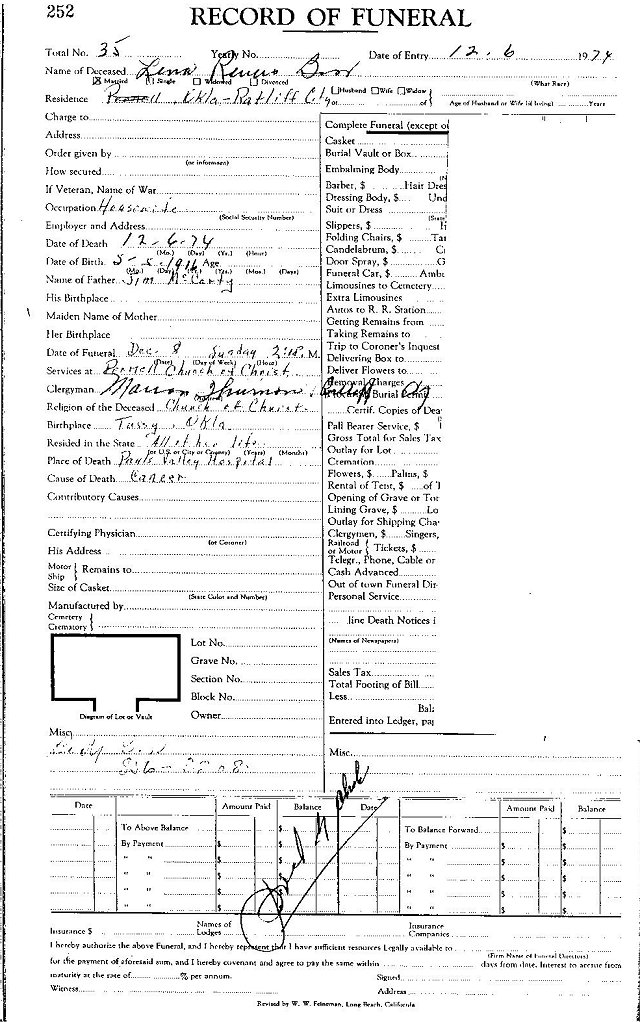 252
RECORD OF FUNERAL
Total No. 35 Yearly No. Date of Entry 12-6 1974
Name of Deceased Lena
Married Single Widowed Divorced (What Race)
Residence Okla - Ratliff City Husband Wife Widow or of Age of Husband or Wife (if living) Years
Charge to
Address
Order given by
(or informant)
How secured
If Veteran, Name of War
Occupation Housewife
(Social Security Number)
Employer and Address
Date of Death 12-6-74
(Mo.) (Day) (Yr.) (Hour)
Date of Birth 5-5-1916 Age
(Mo.) (Day) (Yr.) (Yrs.) (Mos.) (Days)
Name of Father Jim McCarty
His Birthplace
Maiden Name of Mother
Her Birthplace
Date of Funeral Dec. 8 Sunday 2: M.
(Date) (Day of Week) (Hour)
Services at Pernell Church of Christ
Clergyman Marion Thurman
Religion of the Deceased Church of Christ
Birthplace Tussy, Okla
Resided in the State All of her life
(or U.S. or City or County) (Years) (Months)
Place of Death Pauls Valley Hospital
Cause of Death Cancer
Contributory Causes
Certifying Physician
(or Coroner)
His Address
Motor Ship Remains to
Size of Casket
(State Color and Number)
Manufactured by
Cemetery
Crematory
Lot No.
Grave No.
Section No.
Block No.
Owner
Diagram of Lot or Vault
Misc
Complete Funeral (except o
Casket
Burial Vault or Box
Embalming Body
Barber, $ Hair Dres
Dressing Body, $ Und
Suit or Dress
Slippers, $
Folding Chairs, $ Ta
Candelabrum, $
Door Spray, $ G
Funeral Car, $ Ambu
Limousines to Cemetery
Extra Limousines
Autos to R. R. Station
Getting Remains from
Taking Remains to
Trip to Coroner's Inquest
Delivering Box to
Deliver Flowers to
Removal Charges
Burial Permit
Certif. Copies of Dea
Pall Bearer Service, $
Gross Total for Sales Tax
Outlay for Lot
Cremation
Flowers, $ Palms, $
Rental of Tent, $ of
Opening of Grave or To
Lining Grave, $ Lo
Outlay for Shipping Cha
Clergymen, $ Singers,
Railroad or Motor Tickets, $
Telegr., Phone, Cable or
Cash Advanced
Out of town Funeral Dir
Personal Service
line Death Notices i
(Names of Newspapers)
Sales Tax
Total Footing of Bill
Less
Bal
Entered into Ledger, pa
Misc.
Date Amount Paid Balance Date Amount Paid Balance
To Above Balance $ To Balance Forward
By Payment $ $ By Payment $
" " $ $ " " $
" " $ $ " " $
" " $ $ " " $
" " $ $ " " $
Insurance $ Names of Lodges Insurance Companies
I hereby authorize the above Funeral, and I hereby represent that I have sufficient resources Legally available to
(Firm Name of Funeral Directors)
for the payment of aforesaid sum, and I hereby covenant and agree to pay the same within days from date. Interest to accrue from
maturity at the rate of % per annum. Signed
Witness Address
Revised by W. W. Feineman, Long Beach, California